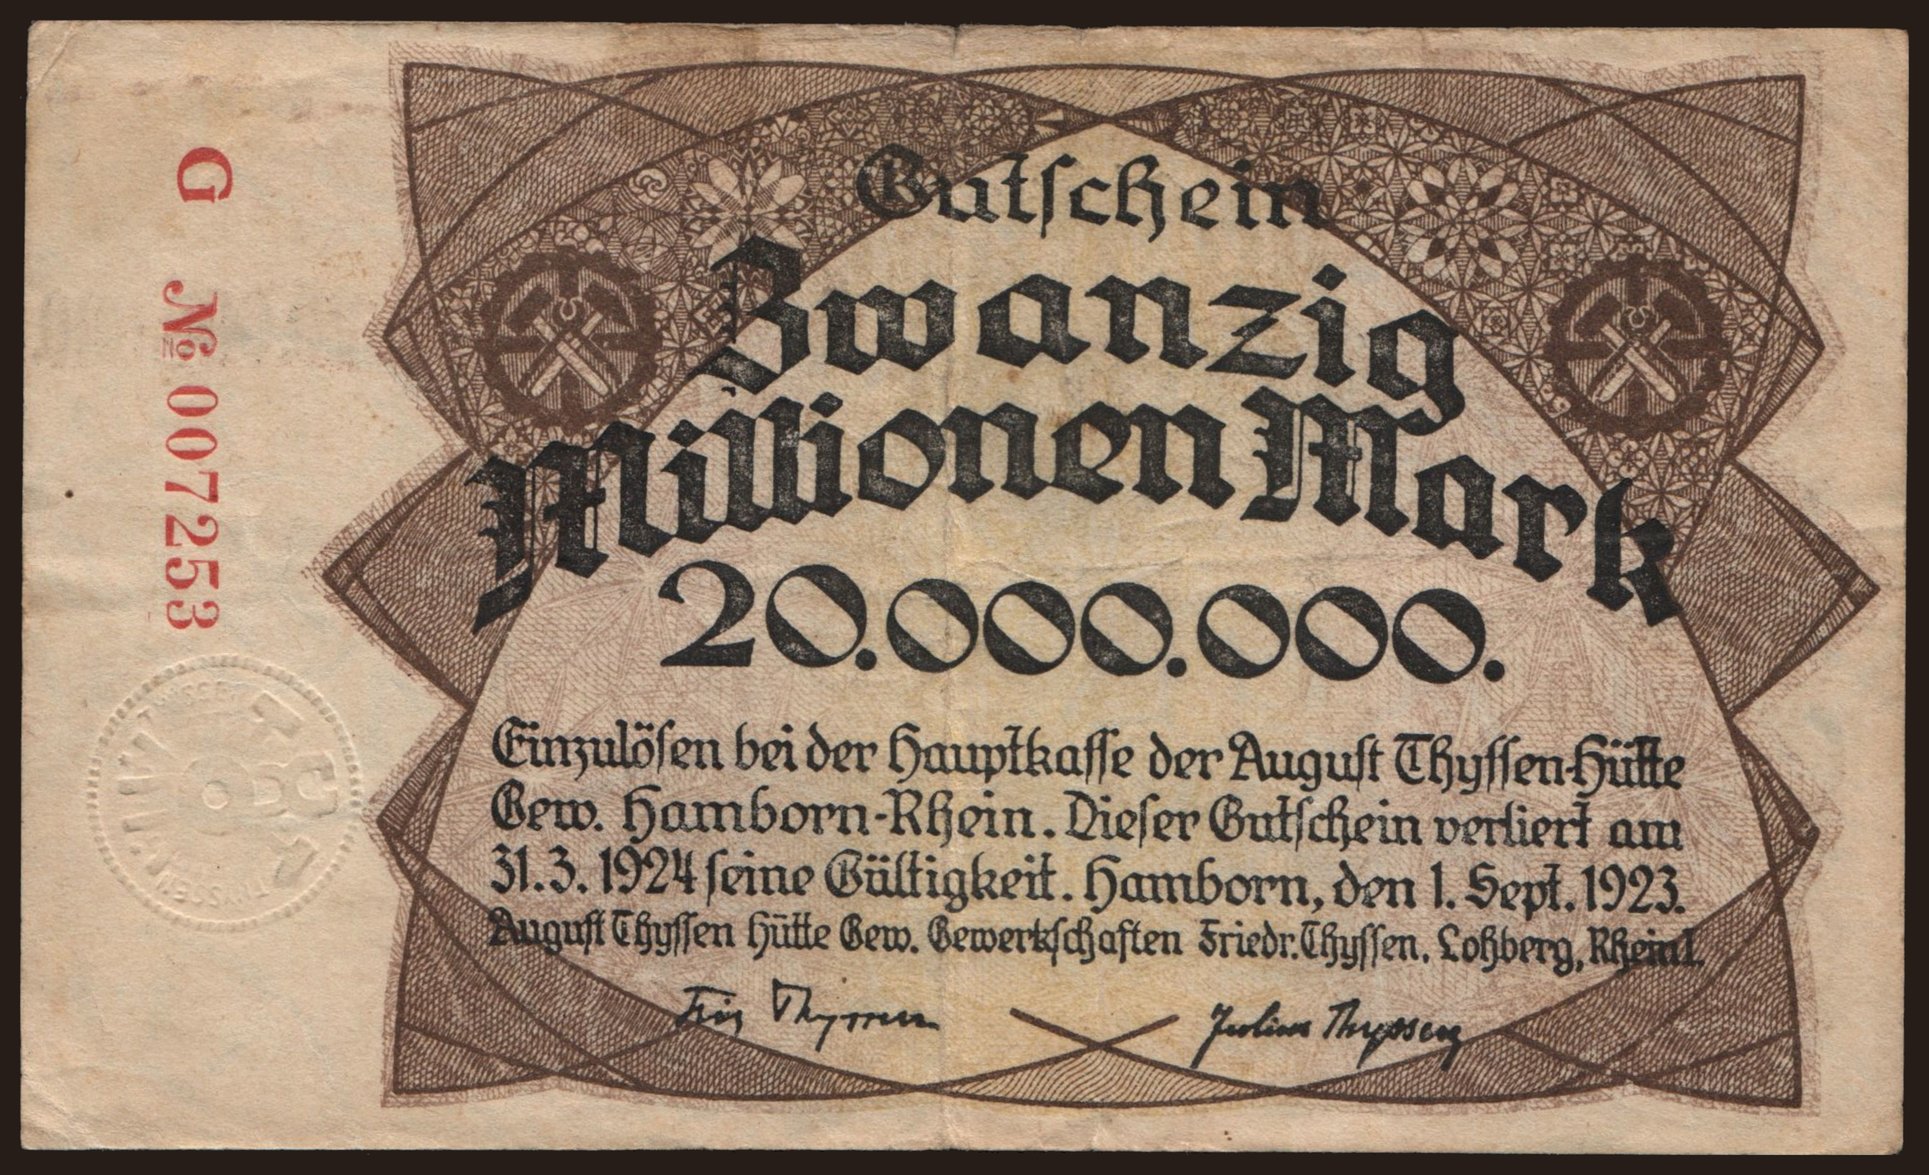 G № 007253
Gutschein
Zwanzig
Millionen Mark
20.000.000.
Einzulösen bei der Hauptkasse der August Thyssen-Hütte
Gew. Hamborn-Rhein. Dieser Gutschein verliert am
31.3.1924 seine Gültigkeit. Hamborn, den 1. Sept. 1923.
August Thyssen Hütte Gew. Gewerkschaften Friedr. Thyssen, Lohberg, Rheinl.
Fritz Thyssen
Julius Thyssen